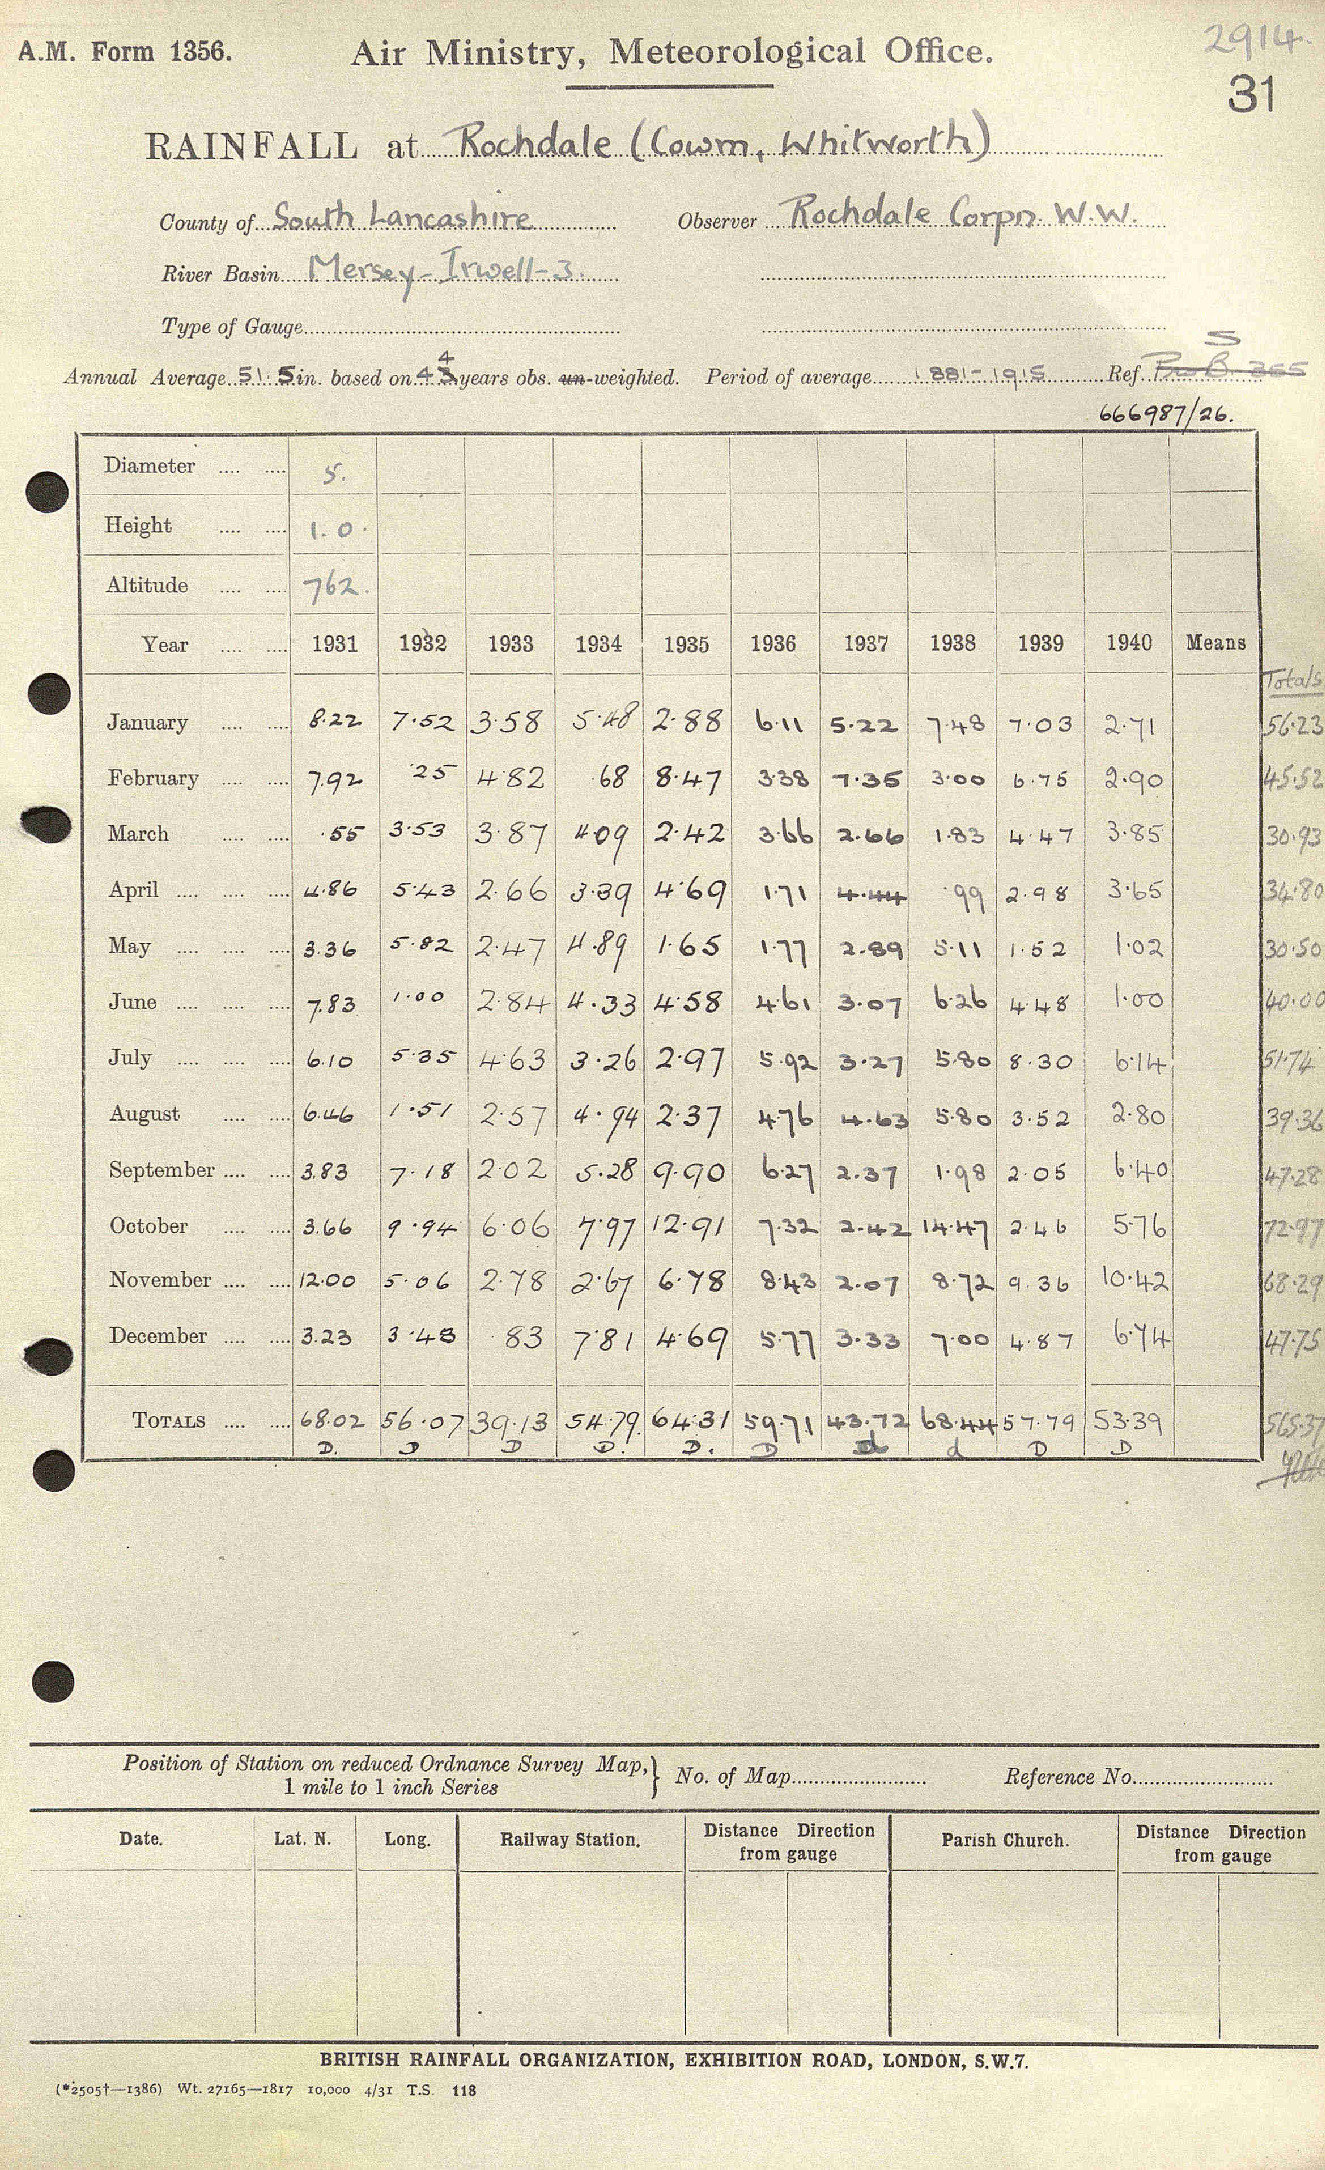 2914.
A.M. Form 1356. Air Ministry, Meteorological Office.
31
RAINFALL at Rochdale (Cowm, Whitworth)
County of South Lancashire Observer Rochdale Corpn. W.W.
River Basin Mersey-Irwell-3.
Type of Gauge
Annual Average 51.5 in. based on 44 years obs. un-weighted. Period of average 1881-1915 Ref. S
666987/26.
Diameter .... .... 5.
Height .... .... 1.0.
Altitude .... .... 762.
Year .... .... 1931 1932 1933 1934 1935 1936 1937 1938 1939 1940 Means
Totals
January .... .... 8.22 7.52 3.58 5.48 2.88 6.11 5.22 7.48 7.03 2.71 56.23
February .... .... 7.92 .25 4.82 .68 8.47 3.38 7.35 3.00 6.75 2.90 45.52
March .... .... .55 3.53 3.87 4.09 2.42 3.66 2.66 1.83 4.47 3.85 30.93
April .... .... .... 4.86 5.43 2.66 3.39 4.69 1.71 4.44 .99 2.98 3.65 34.80
May .... .... .... 3.36 5.82 2.47 4.89 1.65 1.77 2.89 5.11 1.52 1.02 30.50
June .... .... .... 7.83 1.00 2.84 4.33 4.58 4.61 3.07 6.26 4.48 1.00 40.00
July .... .... .... 6.10 5.35 4.63 3.26 2.97 5.92 3.27 5.80 8.30 6.14 51.74
August .... .... 6.46 1.51 2.57 4.94 2.37 4.76 4.63 5.80 3.52 2.80 39.36
September .... .... 3.83 7.18 2.02 5.28 9.90 6.27 2.37 1.98 2.05 6.40 47.28
October .... .... 3.66 9.94 6.06 7.97 12.91 7.32 2.42 14.47 2.46 5.76 72.97
November .... .... 12.00 5.06 2.78 2.67 6.78 8.43 2.07 8.72 9.36 10.42 68.29
December .... .... 3.23 3.48 .83 7.81 4.69 5.77 3.33 7.00 4.87 6.74 47.75
TOTALS .... .... 68.02 56.07 39.13 54.79 64.31 59.71 43.72 68.44 57.79 53.39 565.37
D. D D D. D. D d d D D
Position of Station on reduced Ordnance Survey Map, } No. of Map Reference No.
1 mile to 1 inch Series
Date. Lat. N. Long. Railway Station. Distance Direction from gauge Parish Church. Distance Direction from gauge
BRITISH RAINFALL ORGANIZATION, EXHIBITION ROAD, LONDON, S.W.7.
(*2505†—1386) Wt. 27165—1817 10,000 4/31 T.S. 118